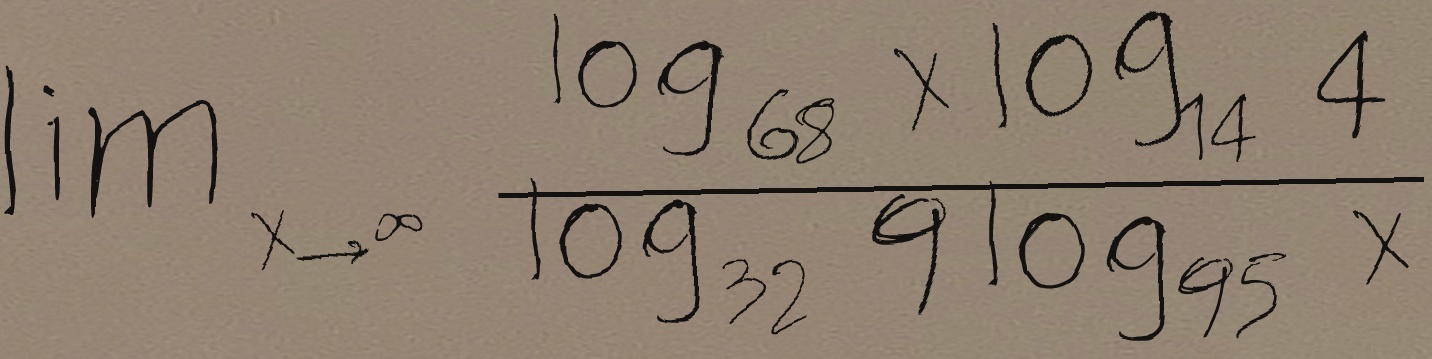 lim x→∞ log₆₈ x log₁₄ 4
log₃₂ 9 log₉₅ x